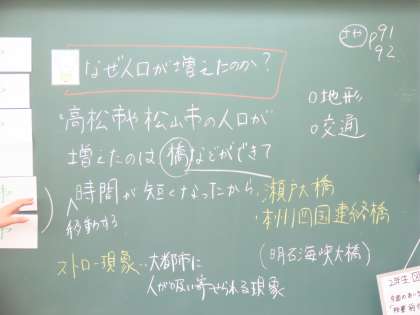 なぜ人口が増えたのか?
教 p91
92
・高松市や松山市の人口が
増えたのは橋などができて
移動する時間が短くなったから。
○地形
○交通
瀬戸大橋
本州四国連絡橋
(明石海峡大橋)
ストロー現象‥大都市に
人が吸い寄せられる現象
2年生